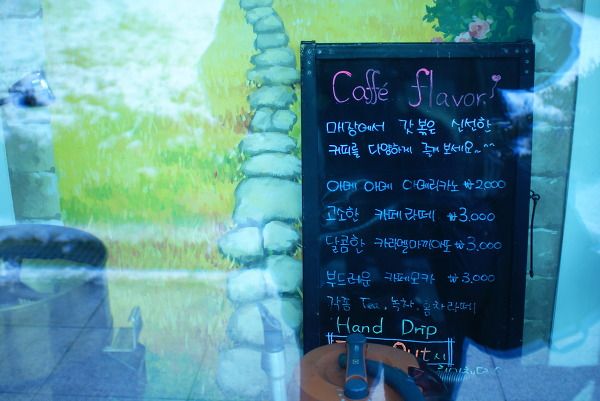 Caffé flavor
매장에서 갓 볶은 신선한
커피를 다양하게 즐겨보세요~^^
아메 아메 아메리카노 ₩2,000
고소한 카페라떼 ₩3,000
달콤한 카라멜마끼아또 ₩3,000
부드러운 카페모카 ₩3,000
각종 Tea, 녹차, 홍차라떼
Hand Drip
Out시